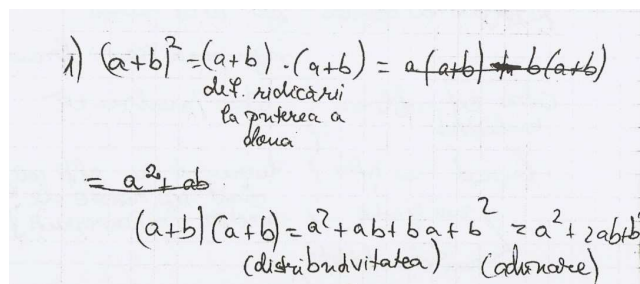 1) (a+b)² = (a+b) · (a+b) = a(a+b) + b(a+b)
def. ridicării
la puterea a
doua
= a² + ab
(a+b)(a+b) = a² + ab + ba + b² = a² + 2ab + b
(distributivitatea) (adunare)